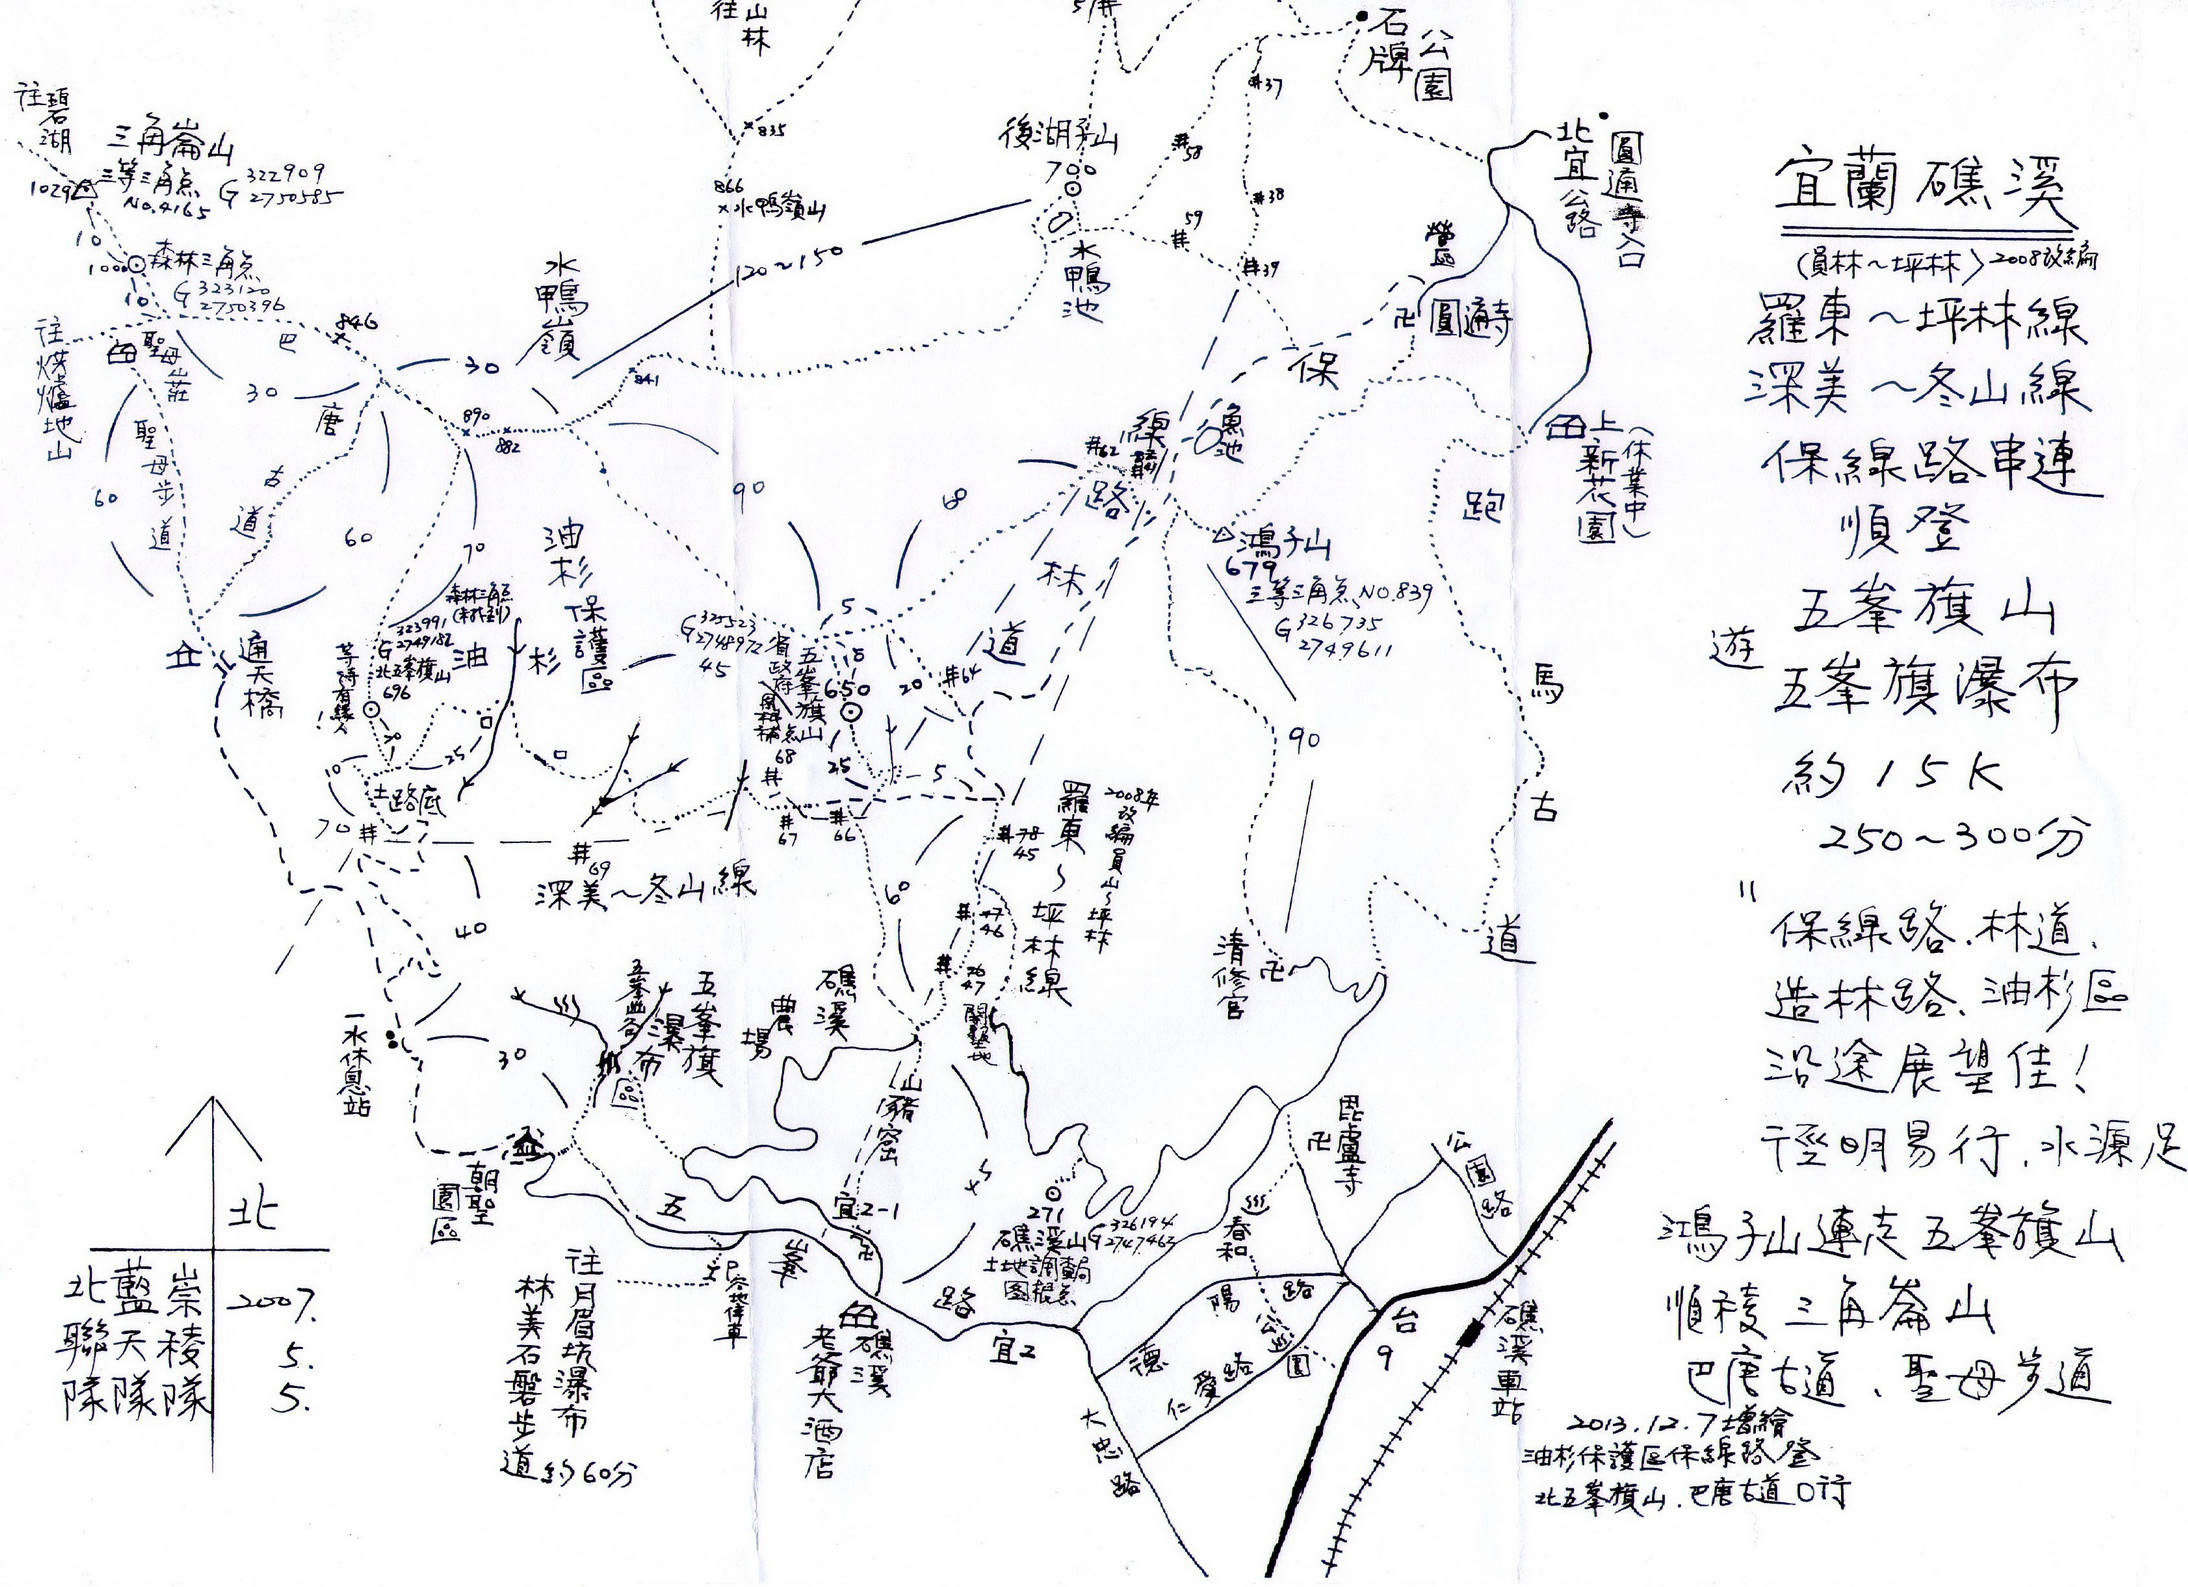 往山林
5/井
石牌
公園
#37
×835
#58
往碧湖
三角崙山
1029
三等三角点
NO.4165
G 322909
2750585
後湖子山
700
北宜公路
圓通寺入口
866
×水鴨嶺山
#38
59
井
#39
營區
卍圓通寺
10
1000
森林三角点
G 323120
2750396
10
水鴨嶺
120~150
水鴨池
往烘爐地山
聖母山莊
聖母步道
846
巴唐古道
30
30
890
882
841
保線路
魚池
#62
上新花園
(休業中)
跑馬古道
60
60
70
90
油杉保護區
鴻子山
679
三等三角点NO.839
G 326735
2749611
林道
通天橋
森林三角点
(未找到)
G 323991
2749182
北五峯旗山
696
等待有緣人!
油杉
G 325523
2748972
45
五峯旗山
650
5
18
20
#64
68
井
25
5
90
20
25
10
土路底
70井
井
69
深美~冬山線
井
67
井
66
#78
45
羅東~坪林線
2008年改編員山~坪林
60
#77
46
井76
47
40
清修宮卍
五峯旗瀑布區
礁溪農場
開墾地
一水休息站
30
山豬窟
毘盧寺
卍
公園路
朝聖園區
五峯路
宜2-1
271
礁溪山
G 326194
2747463
土地調查局
圖根点
春和
往月眉坑瀑布
林美石磐步道約60分
空地停車
礁溪老爺大酒店
宜2
德陽路
仁愛路
公園
大忠路
台9
礁溪車站
北
崇稜隊
藍天隊
北聯隊
2007.
5.
5.
宜蘭礁溪
(員林~坪林)2008改編
羅東~坪林線
深美~冬山線
保線路串連
順登
五峯旗山
遊
五峯旗瀑布
約15K
250~300分
"保線路.林道.
造林路.油杉區
沿途展望佳!
干徑明易行.水源足
鴻子山連走五峯旗山
順稜三角崙山
巴唐古道、聖母步道
2013.12.7增繪
油杉保護區保線路登
北五峯旗山.巴唐古道O行